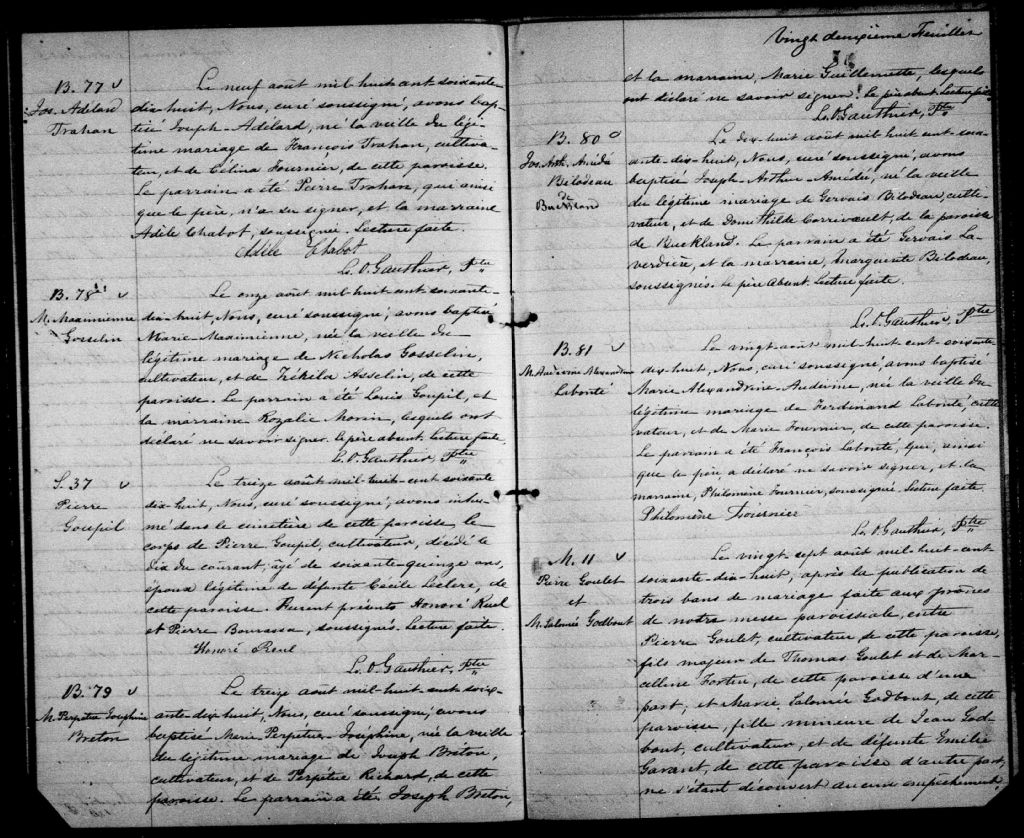 B. 77 v
Jos. Adélard
Trahan
Le neuf août mil-huit-cent soixante
dix-huit, Nous, curé soussigné, avons bap-
tisé Joseph-Adélard, né la veille du légi-
time mariage de François Trahan, cultiva-
teur, et de Célina Fournier, de cette paroisse.
Le parrain a été Pierre Trahan, qui ainsi
que le père, n'a su signer, et la marraine
Adèle Chabot, soussignée. Lecture faite.
Adèle Chabot
L. O. Gauthier, Ptre
B. 78 v
M. Maximienne
Gosselin
Le onze août mil-huit-cent-soixante-
dix-huit, Nous, curé soussigné, avons baptisé
Marie-Maximienne, née la veille du
légitime mariage de Nicholas Gosselin,
cultivateur, et de Asselin, de cette
paroisse. Le parrain a été Louis Goupil, et
la marraine Rozalie Morin, lesquels ont
déclaré ne savoir signer. le père absent. Lecture faite.
L. O. Gauthier, Ptre
S. 37 v
Pierre
Goupil
Le treize août mil-huit-cent soixante
dix-huit, Nous, curé soussigné, avons inhu-
mé dans le cimetière de cette paroisse le
corps de Pierre Goupil, cultivateur, décédé le
dix du courant, âgé de soixante-quinze ans,
époux légitime de défunte Cécile Leclerc, de
cette paroisse. Furent présents Honoré Ruel
et Pierre Bourassa, soussignés. Lecture faite.
Honoré Reul
L. O. Gauthier, Ptre
B. 79 v
M. Perpétue Joséphine
Breton
Le treize août mil-huit-cent soix-
ante-dix-huit, Nous, curé soussigné, avons
baptisé Marie Perpétue-Joséphine, née la veille
du légitime mariage de Joseph Breton,
cultivateur, et de Perpétue Richard, de cette
paroisse. Le parrain a été Joseph Breton,
Vingt deuxième Feuillet
et la marraine, Marie Guillemette, lesquels
ont déclaré ne savoir signer. le père absent. Lecture faite.
L. O. Gauthier, Ptre
B. 80
Jos. Arth. Amédé
Bilodeau
de
Buckland
Le dix-huit août mil-huit cent-soix-
ante-dix-huit, Nous, curé soussigné, avons
baptisé Joseph-Arthur-Amédé, né la veille
du légitime mariage de Gervais Bilodeau, culti-
vateur, et de Domithilde Corrivault, de la paroisse
de Buckland. Le parrain a été Gervais La-
verdière, et la marraine, Marguerite Bilodeau,
soussignés. le père absent. Lecture faite.
L. O. Gauthier, Ptre
B. 81 v
M. Audévine Alexandrine
Labonté
Le vingt août mil-huit cent-soixante-
dix-huit, Nous, curé soussigné, avons baptisé
Marie Alexandrine-Audévine, née la veille du
légitime mariage de Ferdinand Labonté, culti-
vateur, et de Marie Fournier, de cette paroisse.
Le parrain a été François Labonté, qui, ainsi
que le père a déclaré ne savoir signer, et la
marraine, Philomène Fournier, soussignée. Lecture faite.
Philomène Fournier
L. O. Gauthier, Ptre
M. 11 v
Pierre Goulet
et
M. Salomée Godbout
Le vingt sept août mil-huit-cent
soixante-dix-huit, après la publication de
trois bans de mariage faite aux prônes
de notre messe paroissiale, entre
Pierre Goulet, cultivateur de cette paroisse,
fils majeur de Thomas Goulet et de Mar-
celline Fortin, de cette paroisse d'une
part, et Marie Salomée Godbout, de cette
paroisse, fille mineure de Jean God-
bout, cultivateur, et de défunte Emilie
Garant, de cette paroisse d'autre part,
ne s'étant découvert aucun empêchement,